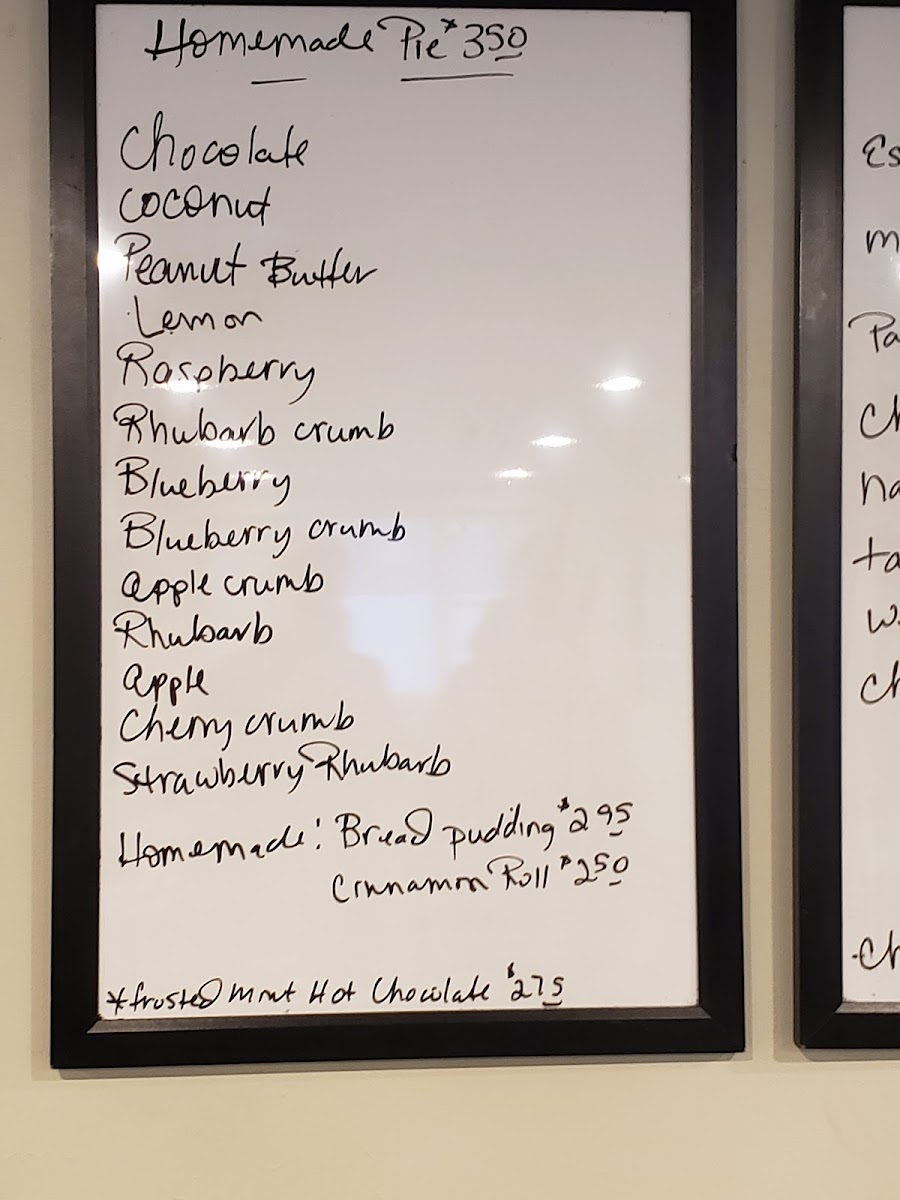 Homemade Pie $3.50
Chocolate
Coconut
Peanut Butter
Lemon
Raspberry
Rhubarb crumb
Blueberry
Blueberry crumb
apple crumb
Rhubarb
apple
Cherry crumb
Strawberry Rhubarb
Homemade: Bread pudding $2.95
Cinnamon Roll $2.50
*frosted Mint Hot Chocolate $2.75
Es
m
Pa
Ch
ha
ta
w
Ch
Ch